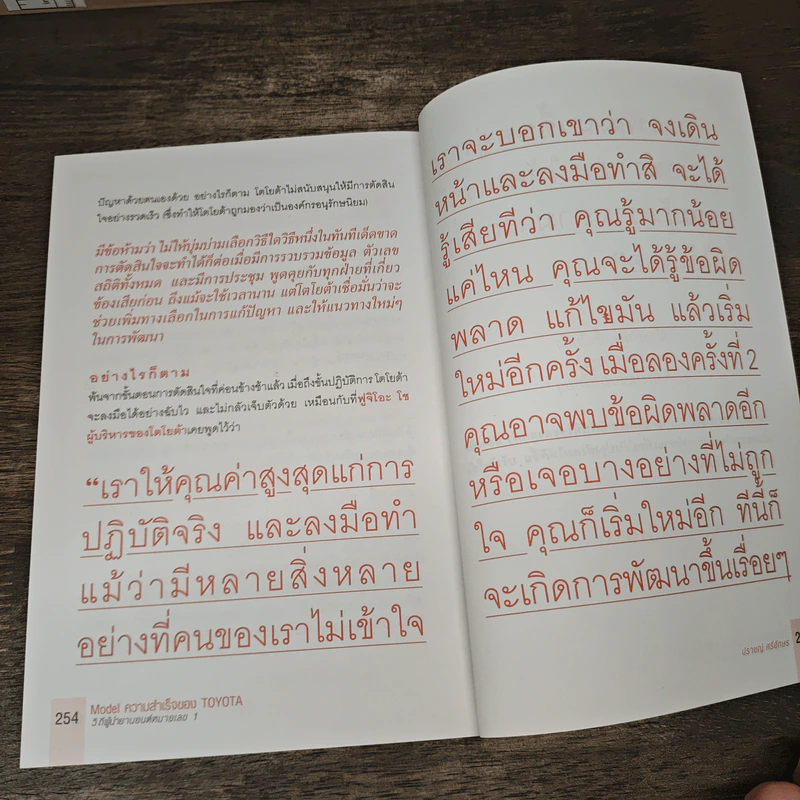 ปัญหาด้วยตนเองด้วย อย่างไรก็ตาม โตโยต้าไม่สนับสนุนให้มีการตัดสิน
ใจอย่างรวดเร็ว (ซึ่งทำให้โตโยต้าถูกมองว่าเป็นองค์กรอนุรักษนิยม)
มีข้อห้ามว่า ไม่ให้บุ่มบ่ามเลือกวิธีใดวิธีหนึ่งในทันทีเด็ดขาด
การตัดสินใจจะทำได้ก็ต่อเมื่อมีการรวบรวมข้อมูล ตัวเลข
สถิติทั้งหมด และมีการประชุม พูดคุยกับทุกฝ่ายที่เกี่ยว
ข้องเสียก่อน ถึงแม้จะใช้เวลานาน แต่โตโยต้าเชื่อมั่นว่าจะ
ช่วยเพิ่มทางเลือกในการแก้ปัญหา และให้แนวทางใหม่ๆ
ในการพัฒนา
อย่างไรก็ตาม
พ้นจากขั้นตอนการตัดสินใจที่ค่อนข้างช้าแล้ว เมื่อถึงขั้นปฏิบัติการ โตโยต้า
จะลงมือได้อย่างฉับไว และไม่กลัวเจ็บตัวด้วย เหมือนกับที่ฟูจิโอะ โช
ผู้บริหารของโตโยต้าเคยพูดไว้ว่า
“เราให้คุณค่าสูงสุดแก่การ
ปฏิบัติจริง และลงมือทำ
แม้ว่ามีหลายสิ่งหลาย
อย่างที่คนของเราไม่เข้าใจ
254
Model ความสำเร็จของ TOYOTA
วิถีผู้นำยานยนต์หมายเลข 1
เราจะบอกเขาว่า จงเดิน
หน้าและลงมือทำสิ จะได้
รู้เสียทีว่า คุณรู้มากน้อย
แค่ไหน คุณจะได้รู้ข้อผิด
พลาด แก้ไขมัน แล้วเริ่ม
ใหม่อีกครั้ง เมื่อลองครั้งที่ 2
คุณอาจพบข้อผิดพลาดอีก
หรือเจอบางอย่างที่ไม่ถูก
ใจ คุณก็เริ่มใหม่อีก ทีนี้ก็
จะเกิดการพัฒนาขึ้นเรื่อยๆ
ปราชญ์ ศรีอักษร